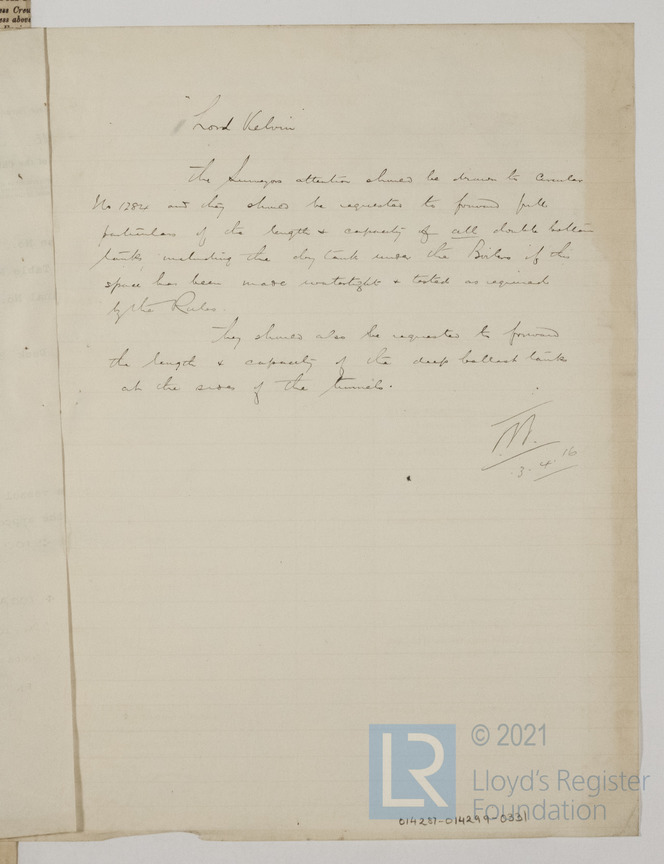 ess Crew
ess above
"Lord Kelvin"
The Surveyors attention should be drawn to Circular
No 1284 and they should be requested to forward full
particulars of the length & capacity of all double bottom
tanks including the dry tank under the Boilers if this
space has been made watertight & tested as required
by the Rules.
They should also be requested to forward
the length & capacity of the deep ballast tanks
at the sides of the tunnels.
3.4.16
LR
© 2021
Lloyd's Register
Foundation
014287-014299-0331